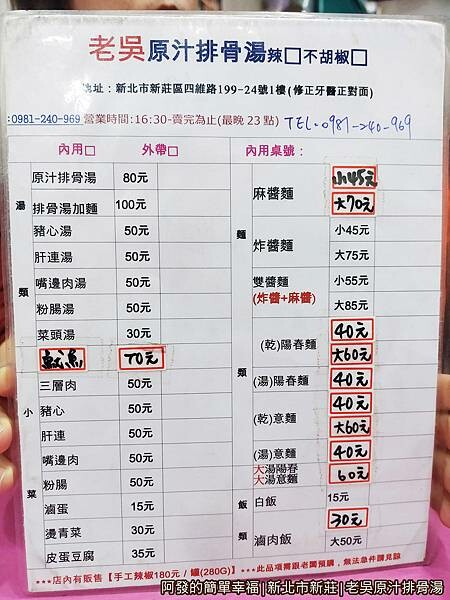 老吳原汁排骨湯辣□不胡椒□
地址：新北市新莊區四維路199-24號1樓(修正牙醫正對面)
:0981-240-969 營業時間:16:30-賣完為止(最晚 23 點) TEL-0981-240-969
內用□ 外帶□ 內用桌號：
湯類
原汁排骨湯 80元
排骨湯加麵 100元
豬心湯 50元
肝連湯 50元
嘴邊肉湯 50元
粉腸湯 50元
菜頭湯 30元
魷魚 70元
小菜
三層肉 50元
豬心 50元
肝連 50元
嘴邊肉 50元
粉腸 50元
滷蛋 15元
燙青菜 30元
皮蛋豆腐 35元
麵類
麻醬麵 小45元
大70元
炸醬麵 小45元
大75元
雙醬麵 小55元
(炸醬+麻醬) 大85元
(乾)陽春麵 40元
大60元
(湯)陽春麵 40元
(乾)意麵 40元
大60元
(湯)意麵 40元
大湯陽春
大湯意麵 60元
飯類
白飯 15元
滷肉飯 30元
大50元
***店內有販售【手工辣椒180元 / 罐(280G)】***此品項需跟老闆預購，無法急件請見諒
阿發的簡單幸福|新北市新莊|老吳原汁排骨湯